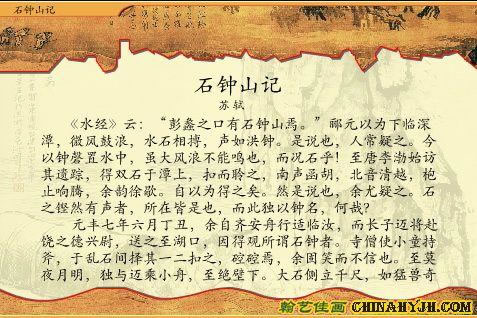 石钟山记
石钟山记
苏轼
《水经》云：“彭蠡之口有石钟山焉。”郦元以为下临深
潭，微风鼓浪，水石相搏，声如洪钟。是说也，人常疑之。今
以钟磬置水中，虽大风浪不能鸣也，而况石乎！至唐李渤始访
其遗踪，得双石于潭上，扣而聆之，南声函胡，北音清越，枹
止响腾，余韵徐歇。自以为得之矣。然是说也，余尤疑之。石
之铿然有声者，所在皆是也，而此独以钟名，何哉？
元丰七年六月丁丑，余自齐安舟行适临汝，而长子迈将赴
饶之德兴尉，送之至湖口，因得观所谓石钟者。寺僧使小童持
斧，于乱石间择其一二扣之，硿硿焉，余固笑而不信也。至莫
夜月明，独与迈乘小舟，至绝壁下。大石侧立千尺，如猛兽奇
翰艺佳画 CHINAHYJH.COM